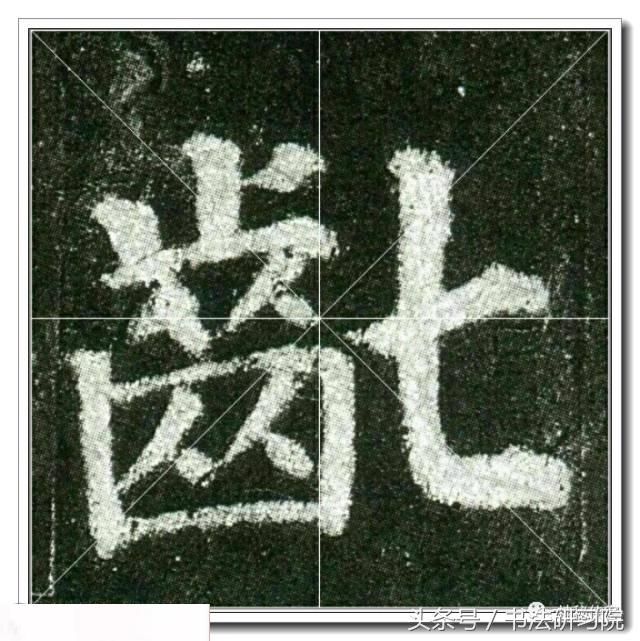 齔
头条号 / 书法研习院